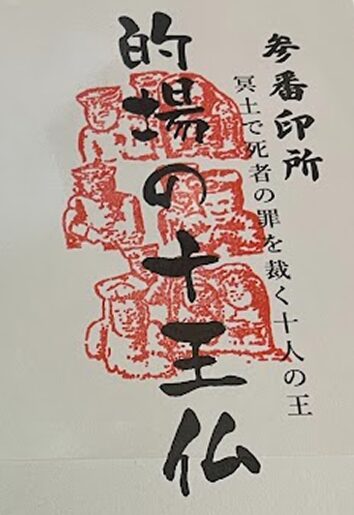 参番印所
冥土で死者の罪を裁く十人の王
的場の十王仏